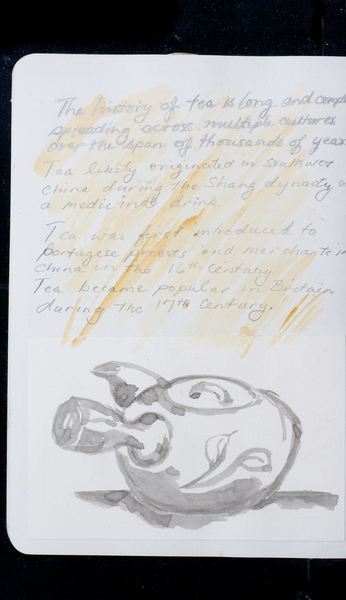 The history of tea is long and comple
spreading across multiple cultures
over the span of thousands of year
Tea likely originated in Southwes
China during the Shang dynady a
a medicinal drink
Tea was first introduced to
Portugese preests and merchants in
China in the 16th Century
Tea became popular in Britain
during the 17th Century.